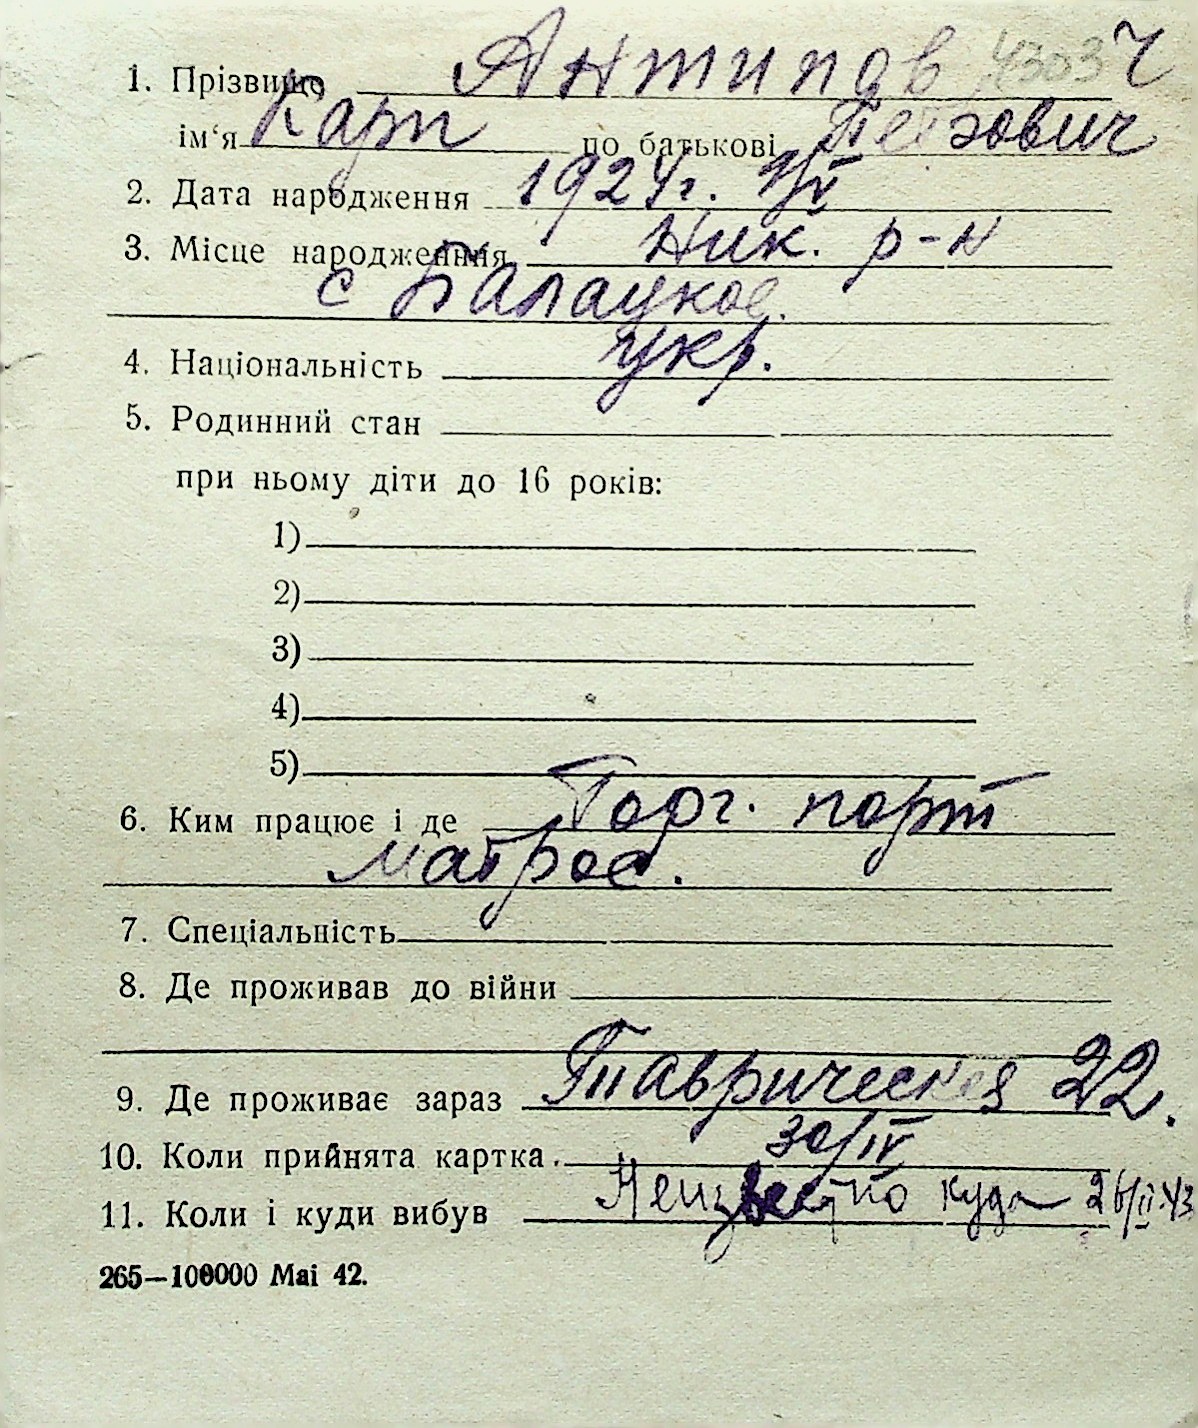 1. Прізвище Антипов 4303 Ч
ім'я Карп по батькові Петрович
2. Дата народження 1924г. 1/V
3. Місце народження Ник. р-н
с Балацкое.
4. Національність укр.
5. Родинний стан
при ньому діти до 16 років:
1)
2)
3)
4)
5)
6. Ким працює і де Торг. порт
матрос.
7. Спеціальність
8. Де проживав до війни
9. Де проживає зараз Таврическая 22.
10. Коли прийнята картка. 30/IV
11. Коли і куди вибув Неизвестно куда 26/II.43
265—100000 Mai 42.